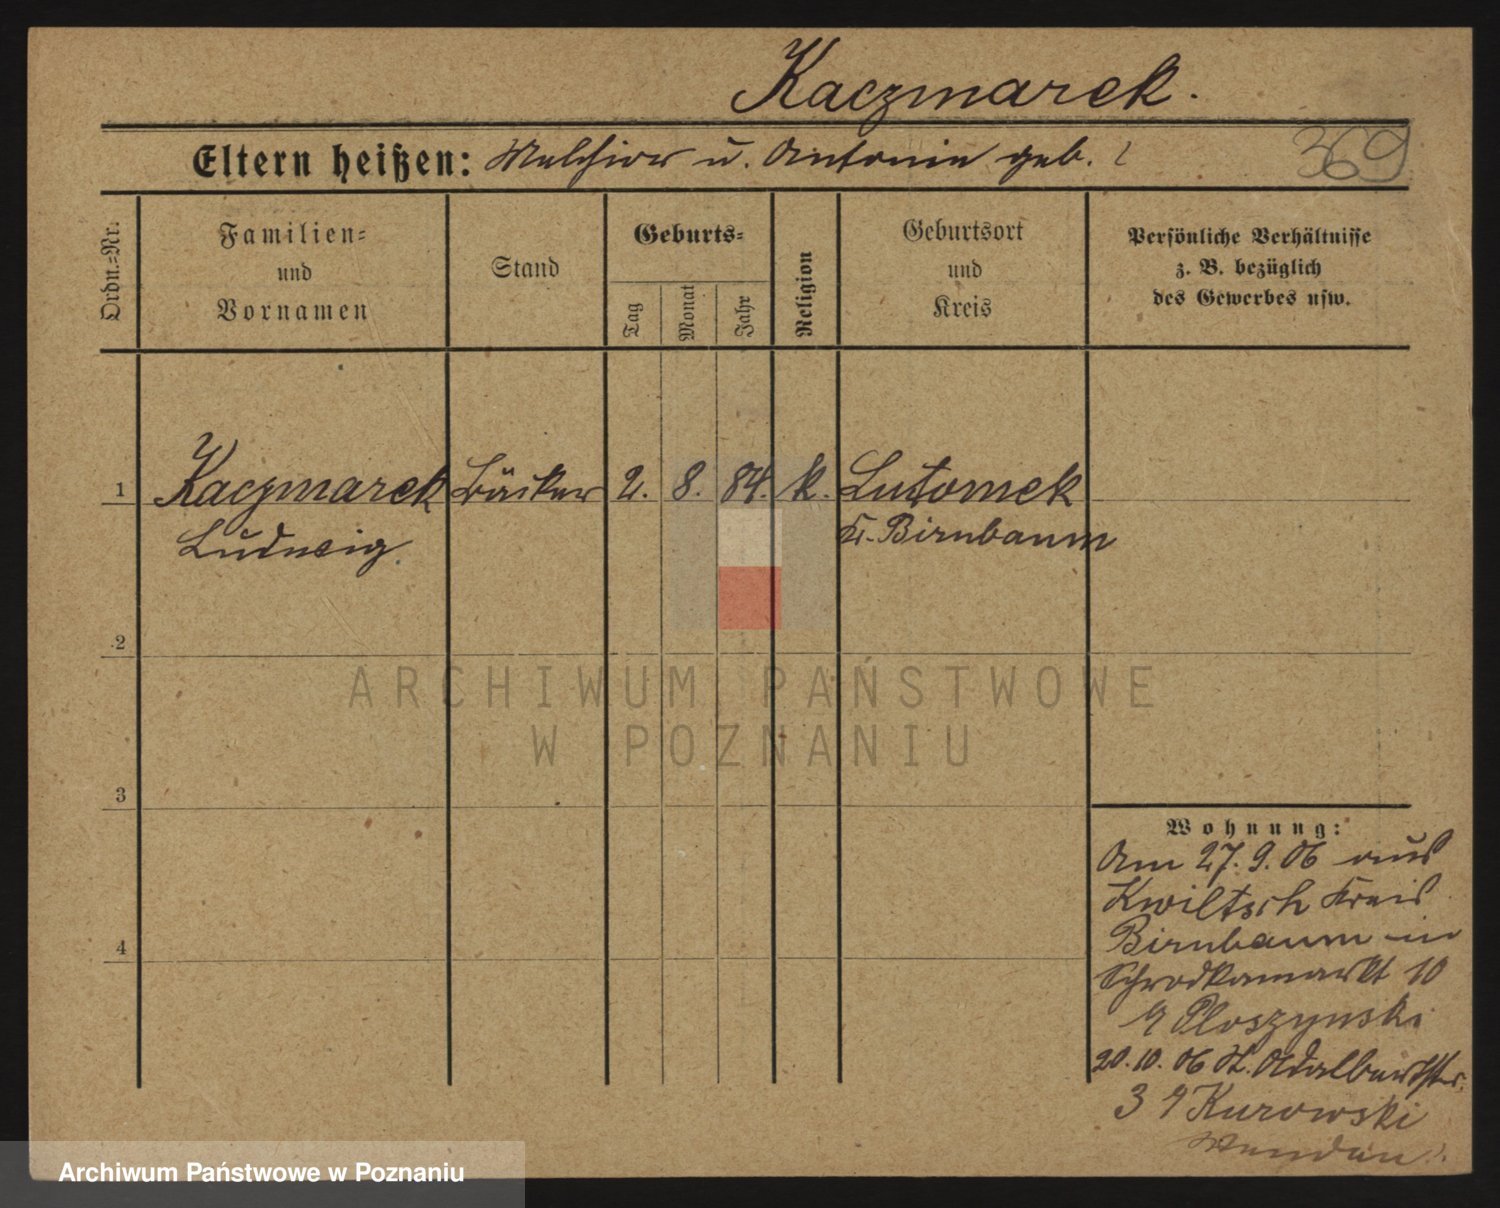 Kaczmarek.
Eltern heißen: Melchior u. Antonie geb. ?
369
Ordn.=Nr.
Familien=
und
Vornamen
Stand
Geburts=
Tag
Monat
Jahr
Religion
Geburtsort
und
Kreis
Persönliche Verhältnisse
z. B. bezüglich
des Gewerbes usw.
1 Kaczmarek Bäcker 2. 8. 84. k. Lutomek
Ludwig Kr. Birnbaum
2
3
4
ARCHIWUM PAŃSTWOWE
W POZNANIU
Wohnung:
Am 27. 9. 06 aus
Kwiltsch Kreis
Birnbaum in
Schrodkamarkt 10
Ploszynski
20. 10. 06 St. Adalbertstr.
3 Kurowski
Archiwum Państwowe w Poznaniu